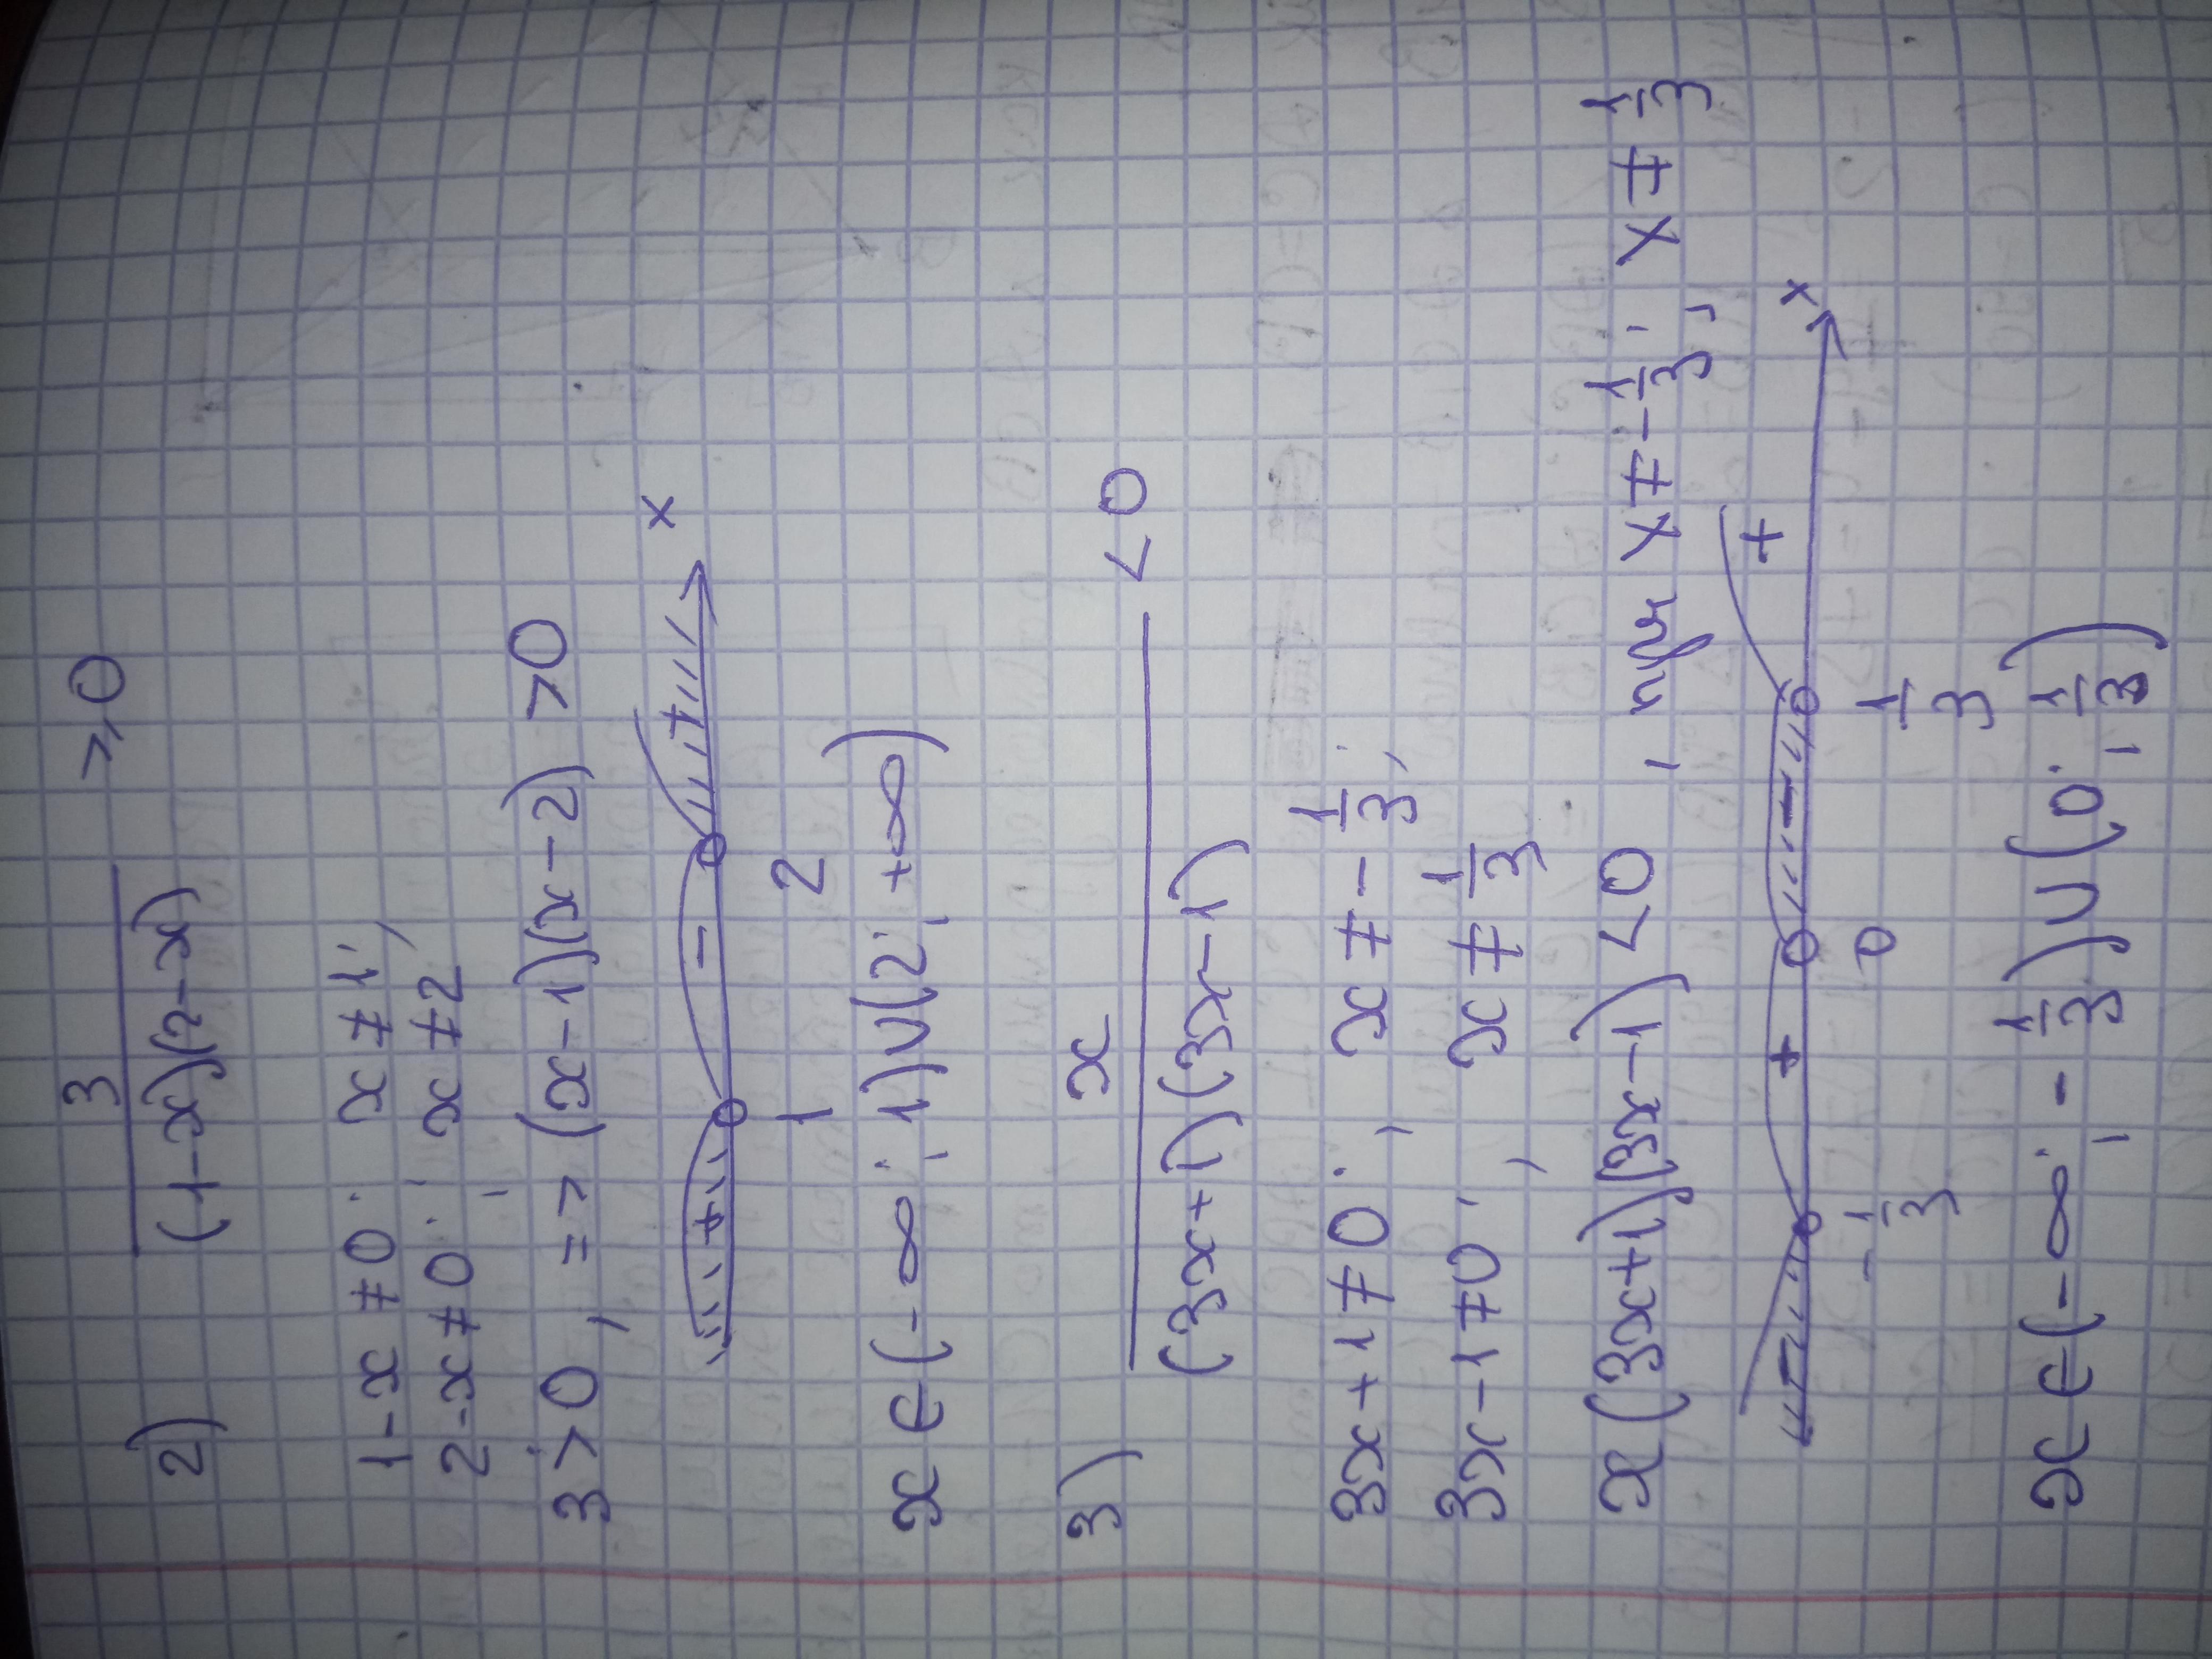 2) 3/((1-x)(2-x)) ⩾0
1-x≠0; x≠1;
2-x≠0; x≠2;
3>0, => (x-1)(x-2)>0
+ - + x
1 2
x∈(-∞; 1)∪(2; +∞)
3) x/((3x+1)(3x-1)) <0
3x+1≠0; x≠-1/3;
3x-1≠0; x≠1/3
x(3x+1)(3x-1)<0, при x≠-1/3; x≠1/3
- + - + x
-1/3 0 1/3
x∈(-∞; -1/3)∪(0; 1/3)